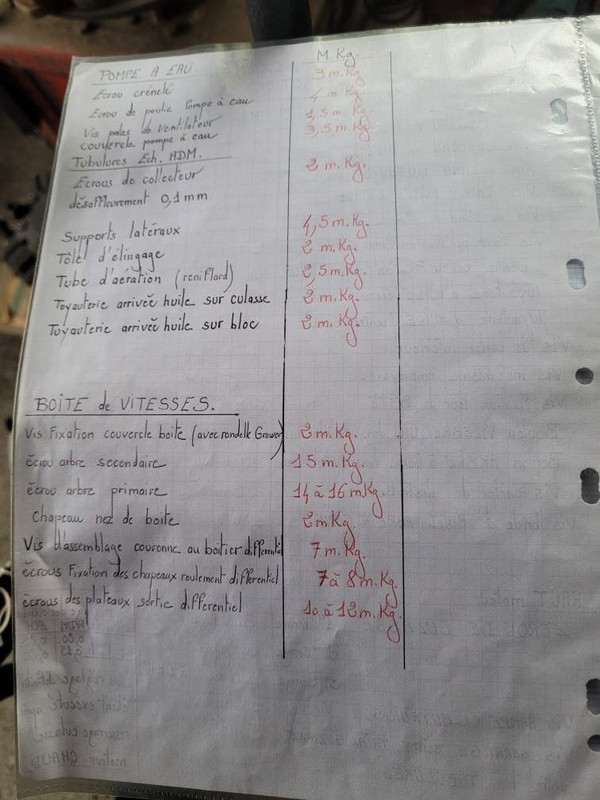 M.Kg.
POMPE A EAU
Ecrou crénelé 3 m.Kg
Ecrou de poulie Pompe à eau 4 m.Kg
Vis pales de Ventilateur 1,5 m.Kg
couvercle pompe à eau 3,5 m.Kg
Tubulures Ech. ADM.
Ecrous de collecteur 2 m.Kg.
désaffleurement 0,1 mm
Supports latéraux 4,5 m.Kg.
Tôle d'élingage 2 m.Kg.
Tube d'aération (reniflard) 2,5 m.Kg.
Tuyauterie arrivée huile sur culasse 2 m.Kg.
Tuyauterie arrivée huile sur bloc 2 m.Kg.
BOITE de VITESSES.
Vis Fixation couvercle boite (avec rondelle Grower) 2 m.Kg.
écrou arbre secondaire 15 m.Kg.
écrou arbre primaire 14 à 16 mKg.
Chapeau nez de boite 2 mKg.
Vis d'assemblage couronne au boitier différentiel 7 m.Kg.
écrous Fixation des chapeaux roulement différentiel 7 à 8 m.Kg.
écrous des plateaux sortie différentiel 10 à 12 m.Kg.